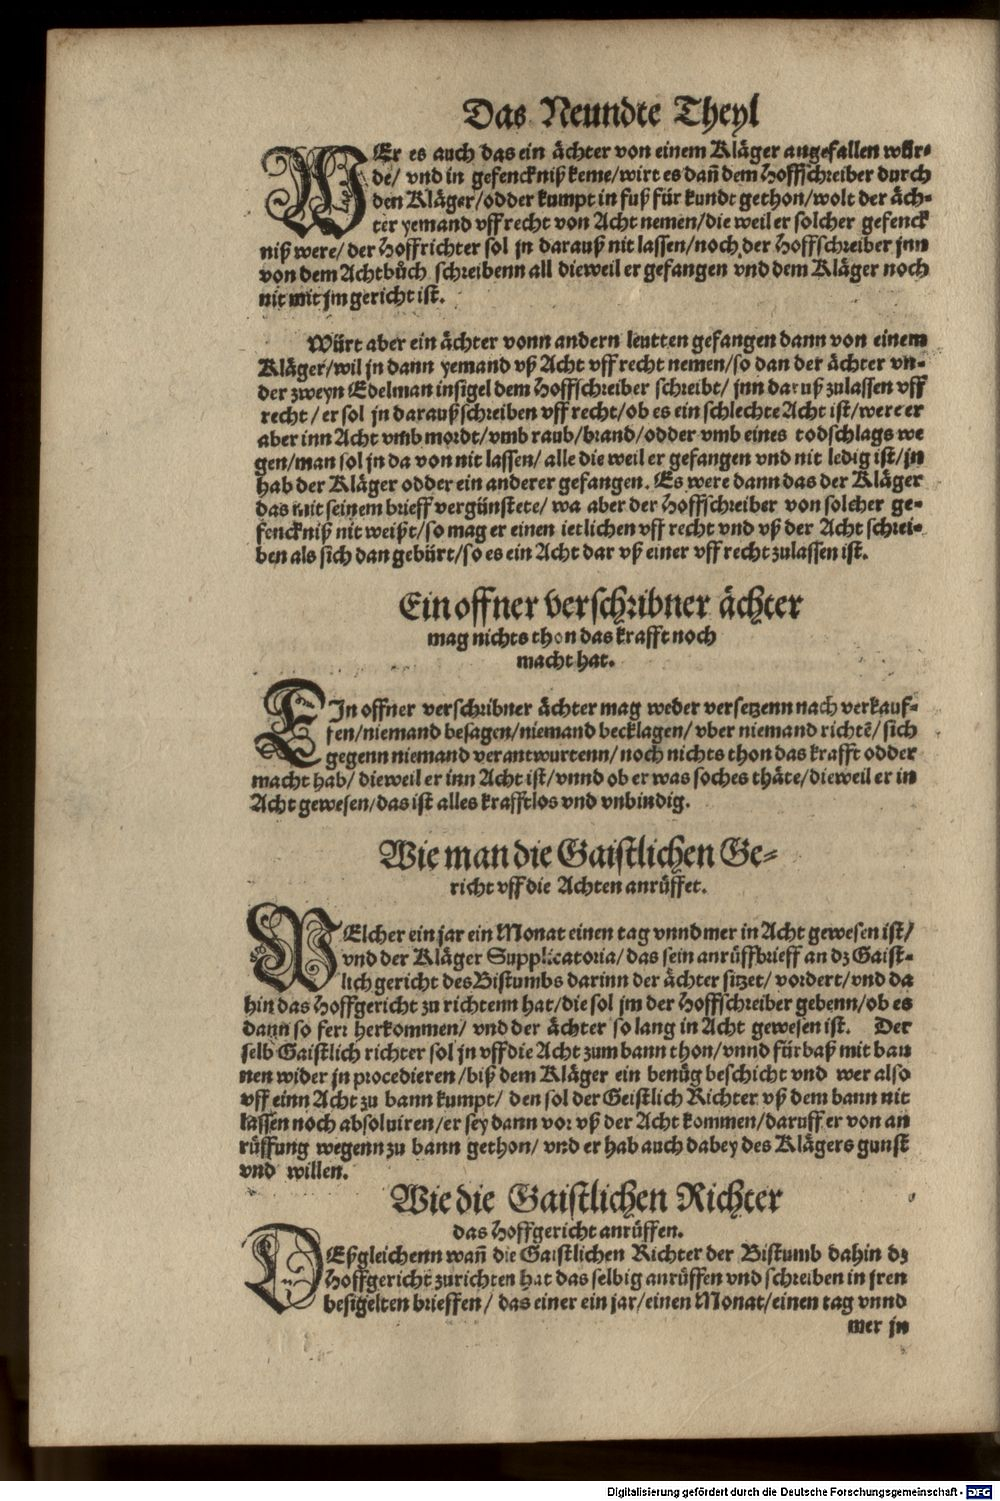 Das Neundte Theyl
WEr es auch das ein ächter von einem Kläger angefallen würde/
vnd in gefenckniß keme/wirt es dañ dem Hoffschreiber durch
den Kläger/odder kumpt in fuß für kundt gethon/wolt der äch-
ter yemand vff recht von Acht nemen/die weil er solcher gefenck
niß were/ der Hoffrichter sol jn darauß nit lassen/noch der Hoffschreiber jnn
von dem Achtbůch schreibenn all dieweil er gefangen vnd dem Kläger noch
nit mit jm gericht ist.
Würt aber ein ächter vonn andern leutten gefangen dann von einem
Kläger/wil jn dann yemand vß Acht vff recht nemen/so dan der ächter vn-
der zweyn Edelman insigel dem Hoffschreiber schreibt/ jnn daruß zulassen vff
recht/ er sol jn darauß schreiben vff recht/ob es ein schlechte Acht ist/were er
aber inn Acht vmb mordt/vmb raub/brand/odder vmb eines todschlags we
gen/man sol jn da von nit lassen/ alle die weil er gefangen vnd nit ledig ist/jn
hab der Kläger odder ein anderer gefangen. Es were dann das der Kläger
das mit seinem brieff vergünstete/ wa aber der Hoffschreiber von solcher ge-
fenckniß nit weißt/so mag er einen ietlichen vff recht vnd vß der Acht schrei-
ben als sich dan gebürt/so es ein Acht dar vß einer vff recht zulassen ist.
Ein offner verschribner ächter
mag nichts thon das krafft noch
macht hat.
EIn offner verschribner ächter mag weder versetzenn nach verkauf-
fen/niemand besagen/niemand becklagen/ vber niemand richtē/ sich
gegenn niemand verantwurtenn/ noch nichts thon das krafft odder
macht hab/ dieweil er inn Acht ist/vnnd ob er was soches thäte/dieweil er in
Acht gewesen/das ist alles krafftlos vnd vnbindig.
Wie man die Gaistlichen Ge-
richt vff die Achten anrüffet.
WElcher ein jar ein Monat einen tag vnnd mer in Acht gewesen ist/
vnd der Kläger Supplicatoria/das sein anrüffbrieff an dz Gaist-
lich gericht des Bistumbs darinn der ächter sitzet/ vordert/vnd da
hin das Hoffgericht zu richtenn hat/die sol jm der Hoffschreiber gebenn/ob es
dann so ferr herkommen/ vnd der ächter so lang in Acht gewesen ist. Der
selb Gaistlich richter sol jn vff die Acht zum bann thon/vnnd fürbaß mit ban
nen wider jn procedieren/biß dem Kläger ein benüg beschicht vnd wer also
vff einn Acht zu bann kumpt/ den sol der Geistlich Richter vß dem bann nit
lassen noch absoluiren/er sey dann vor vß der Acht kommen/daruff er von an
rüffung wegenn zu bann gethon/ vnd er hab auch dabey des Klägers gunst
vnd willen.
Wie die Gaistlichen Richter
das Hoffgericht anrüffen.
DEßgleichenn wañ die Gaistlichen Richter der Bistumb dahin dz
Hoffgericht zurichten hat das selbig anrüffen vnd schreiben in jren
besigelten brieffen/ das einer ein jar/einen Monat/einen tag vnnd
mer jn
Digitalisierung gefördert durch die Deutsche Forschungsgemeinschaft - DFG